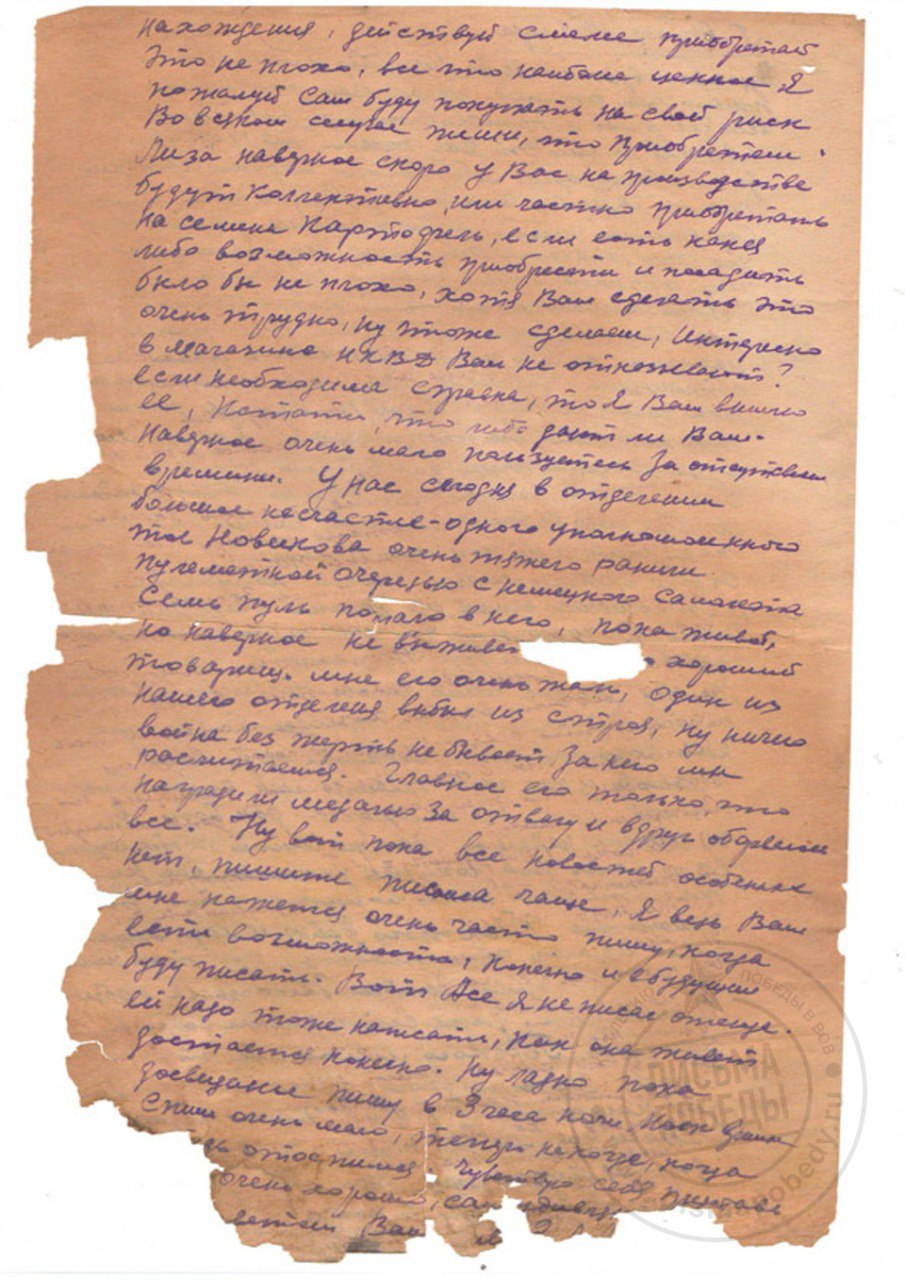 нахождения, действуй смелее приобретай
Это не плохо, все что наиболе ценное я
пожалуй сам буду покупать на свой риск
Во всяком случае пиши, что приобретеш.
Лиза наверное скоро у Вас на производстве
будут коллективно, или частно приобретать
на семена картофель, если есть какая
либо возможность приобрести и посадить
было бы не плохо, хотя Вам сделать это
очень трудно, ну тоже сделаем, Интересно
в магазине НКВД Вам не отказывают?
если необходима справка, то я Вам вышлю
ее, Кстати, что либо дают ли Вам.
наверное очень мало пользуетесь за отсутствием
времени. У нас сегодня в отделении
большое несчастье - одного уполномоченного
тов Новикова очень тяжело ранили
пулеметной очередью с немецкого самолета
Семь пуль попало в него, пока живой,
но наверное не выживе хороший
товарищ. мне его очень жаль, один из
нашего отделения выбыл из строя, ну ничего
война без жертв не бывает За него мы
расчитаемся. Главное его только, что
наградили медалью За отвагу и вдруг оборвалось
все. Ну вот пока все новостей особенных
нет, пишите письма чаще, Я ведь Вам
мне кажется очень часто пишу, когда
есть возможность, конечно и в будущем
буду писать. Вот Асе я не писал отсюда.
ей надо тоже написать, как она живет
достается конечно. Ну ладно пока
досвидание пишу в 3 часа ночи, наск время
Спим очень мало, теперь некогда, когда
отоспимся. Чувствую себя
очень хорошо, сам
Ваш